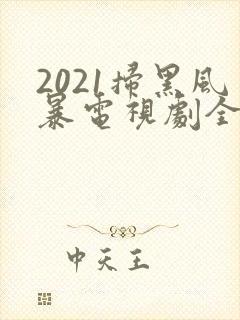 2021掃黑風
暴電視劇全
中天王